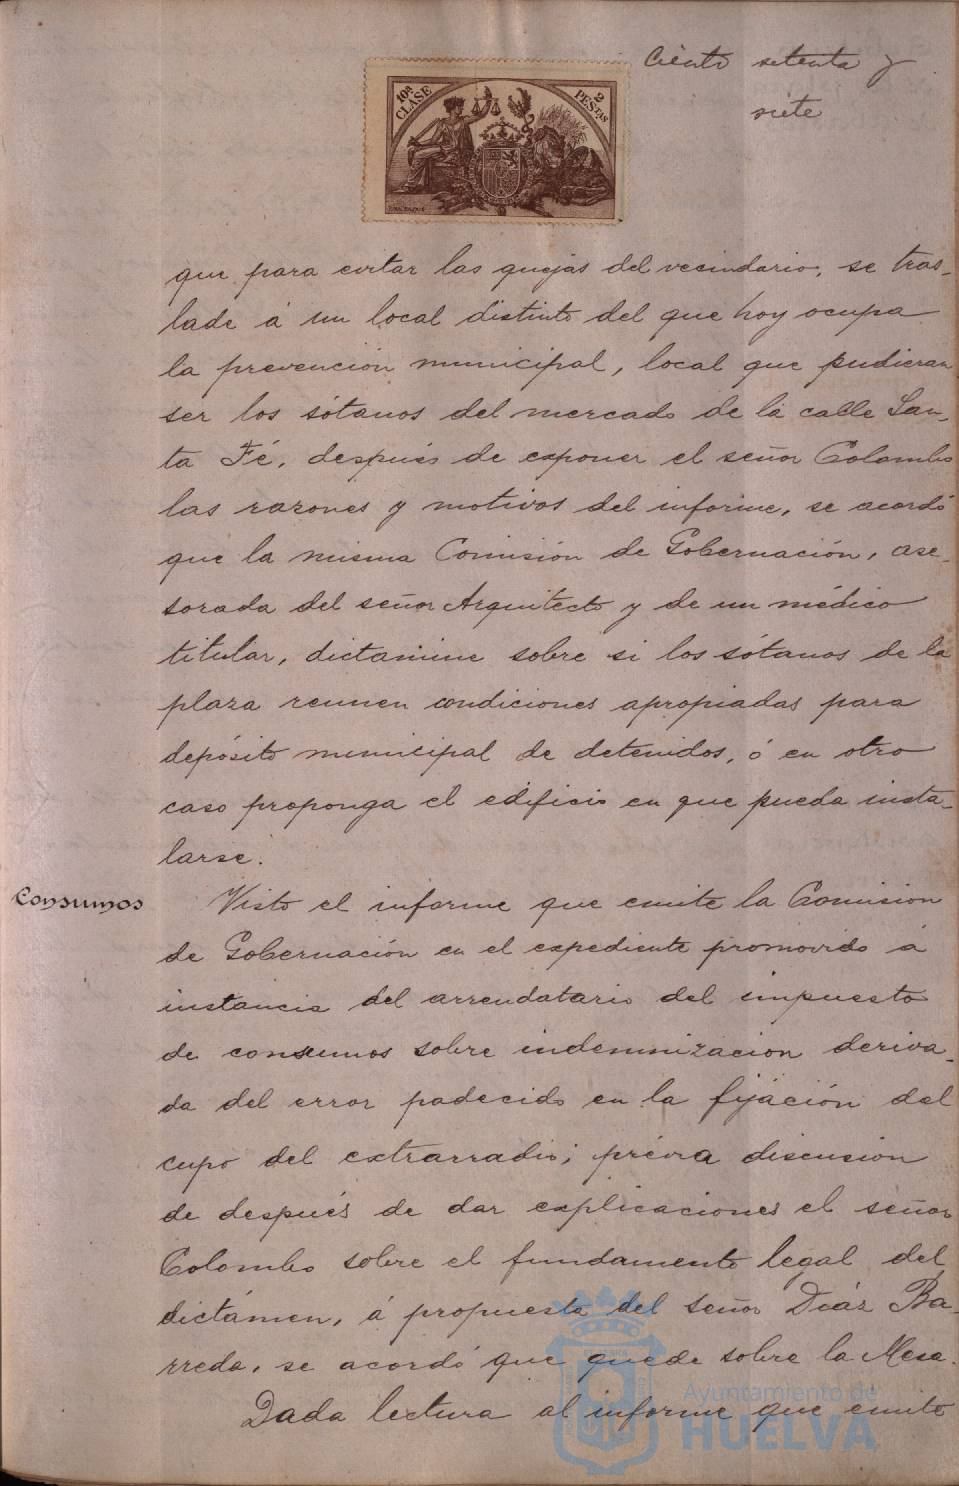 Ciento setenta y
siete
10ª CLASE
2 PESTAS
que para evitar las quejas del vecindario, se tras-
lade á un local distinto del que hoy ocupa
la prevención municipal, local que pudieran
ser los sótanos del mercado de la calle San-
ta Fé, después de exponer el señor Colombo
las razones y motivos del informe, se acordó
que la misma Comisión de Gobernación, ase-
sorada del señor Arquitecto y de un médico
titular, dictamine sobre si los sótanos de la
plaza reunen condiciones apropiadas para
depósito municipal de detenidos, ó en otro
caso proponga el edificio en que pueda insta-
larse.
Consumos
Visto el informe que emite la Comision
de Gobernación en el expediente promovido á
instancia del arrendatario del impuesto
de consumos sobre indemnizacion deriva-
da del error padecido en la fijáción del
cupo del extrarradio; prévia discusion
de después de dar explicaciones el señor
Colombo sobre el fundamento legal del
dictámen, á propuesta del señor Diáz Ba-
rreda, se acordó que quede sobre la Mesa.
Dada lectura al informe que emite
Ayuntamiento de
HUELVA